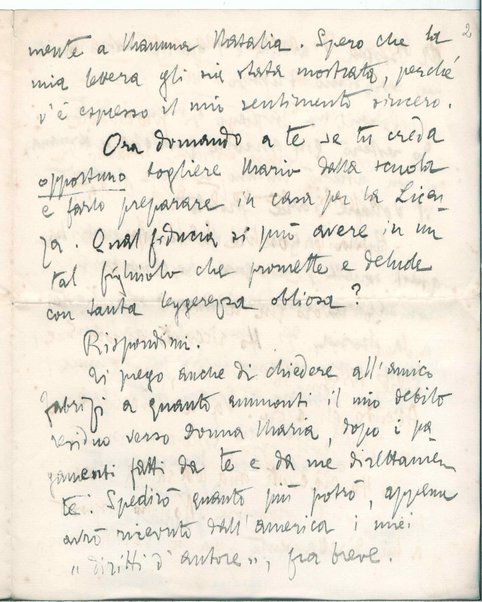 2
mente a Mamma Natalia. Spero che la
mia lettera gli sia stata mostrata, perché
v'è espresso il mio sentimento sincero.
Ora domando a te se tu creda
opportuno togliere Mario dalla scuola
e farlo preparare in casa per la Licen-
za. Qual fiducia si può avere in un
tal figliuolo che promette e delude
con tanta leggerezza obliosa?
Rispondimi.
Ti prego anche di chiedere all'amico
Fabrizi a quanto ammonti il mio debito
residuo verso donna Maria, dopo i pa-
gamenti fatti da te e da me direttamen-
te. Spedirò quanto più potrò, appena
avrò ricevuto dall'america i miei
"diritti d'autore", fra breve.